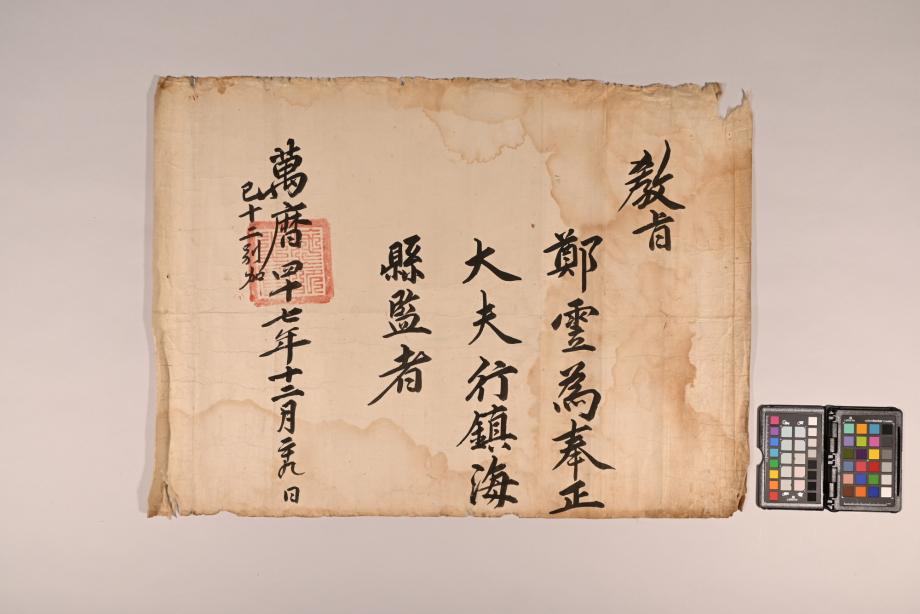 教旨
鄭雲為奉正
大夫行鎮海
縣監者
萬曆四十七年十二月二十九日
已十二別加